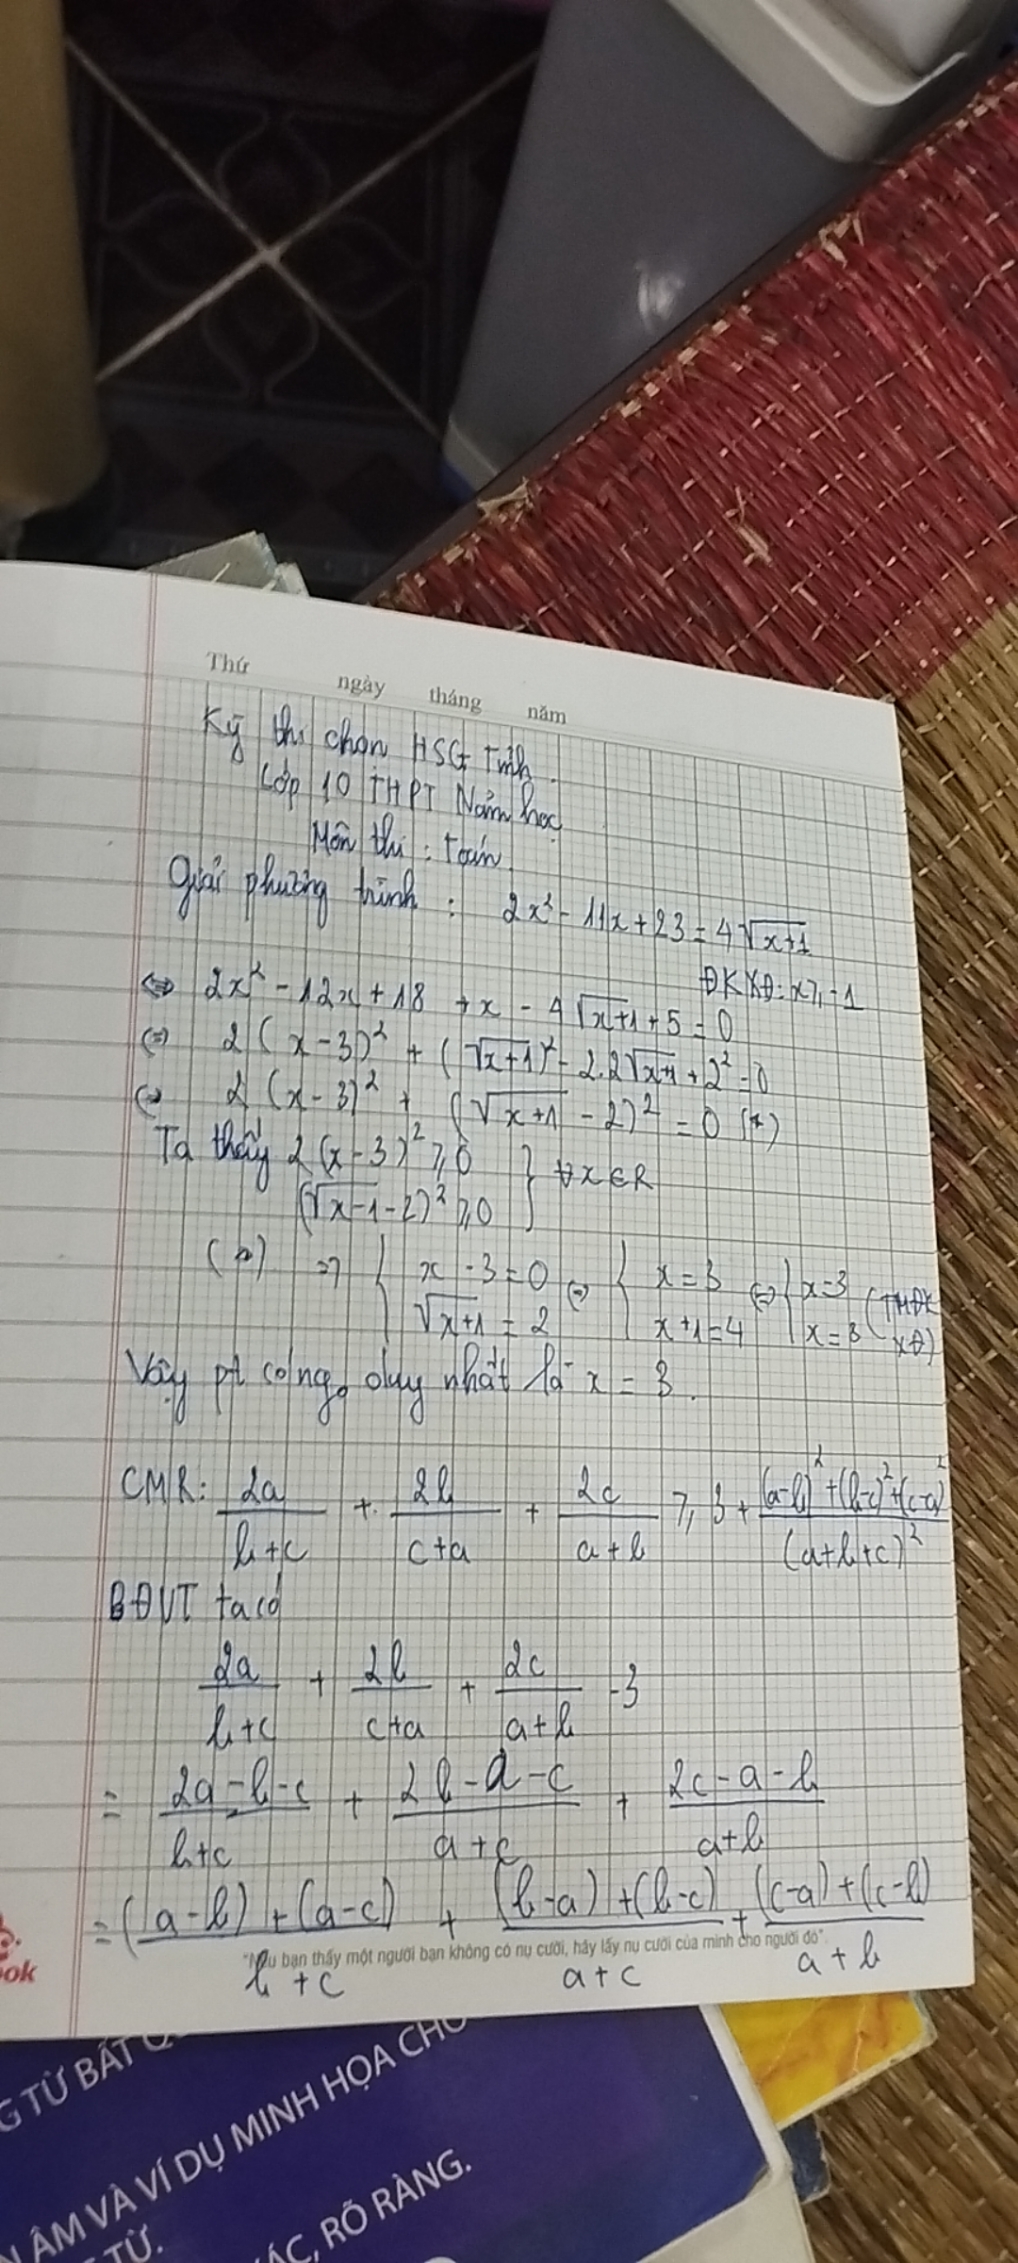 Thứ ngày tháng năm
Kỳ thi chọn HSG Tỉnh
Lớp 10 THPT Năm học
Môn thi : Toán
Giải phương trình : 2x² - 11x + 23 = 4√(x+1)
ĐKXĐ: x ≥ -1
⇔ 2x² - 12x + 18 + x - 4√(x+1) + 5 = 0
⇔ 2(x-3)² + (√(x+1))² - 2.2√(x+1) + 2² = 0
⇔ 2(x-3)² + (√(x+1) - 2)² = 0 (*)
Ta thấy 2(x-3)² ≥ 0
(√(x-1) - 2)² ≥ 0 } ∀x∈R
(*) ⇒ { x - 3 = 0 ⇔ { x = 3 ⇔ { x = 3 (TMĐK
√(x+1) = 2 x+1 = 4 x = 3 XĐ)
Vậy pt có ng° duy nhất là x = 3.
CMR: 2a/(b+c) + 2b/(c+a) + 2c/(a+b) ≥ 3 + ((a-b)²+(b-c)²+(c-a)²)/(a+b+c)²
BĐVT ta có
2a/(b+c) + 2b/(c+a) + 2c/(a+b) - 3
= (2a-b-c)/(b+c) + (2b-a-c)/(a+c) + (2c-a-b)/(a+b)
= ((a-b)+(a-c))/(b+c) + ((b-a)+(b-c))/(a+c) + ((c-a)+(c-b))/(a+b)
"Nếu bạn thấy một người bạn không có nụ cười, hãy lấy nụ cười của mình cho người đó".
ok
G TỪ BẤT
ÂM VÀ VÍ DỤ MINH HỌA CHO
TỪ.
ÁC, RÕ RÀNG.